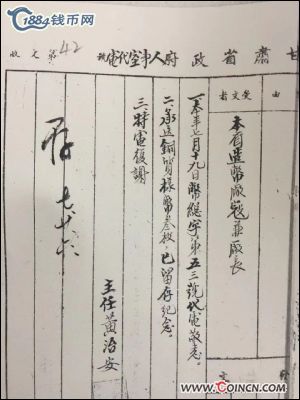 1884钱币网
甘肅省政府人事室代電
收文第42號
由
受文者
本省造幣廠寇兼廠長
一、本年七月十九日幣總字第五三號代電敬悉。
二、承送銅質樣幣叁枚，已留存紀念。
三、特電復謝
主任黃治安
存 七廿六
WWW.COINCN.COM